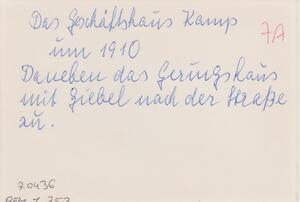 Das Geschäftshaus Kamp
um 1910
7A
Daneben das Gerungshaus
mit Giebel nach der Straße
zu.
70436